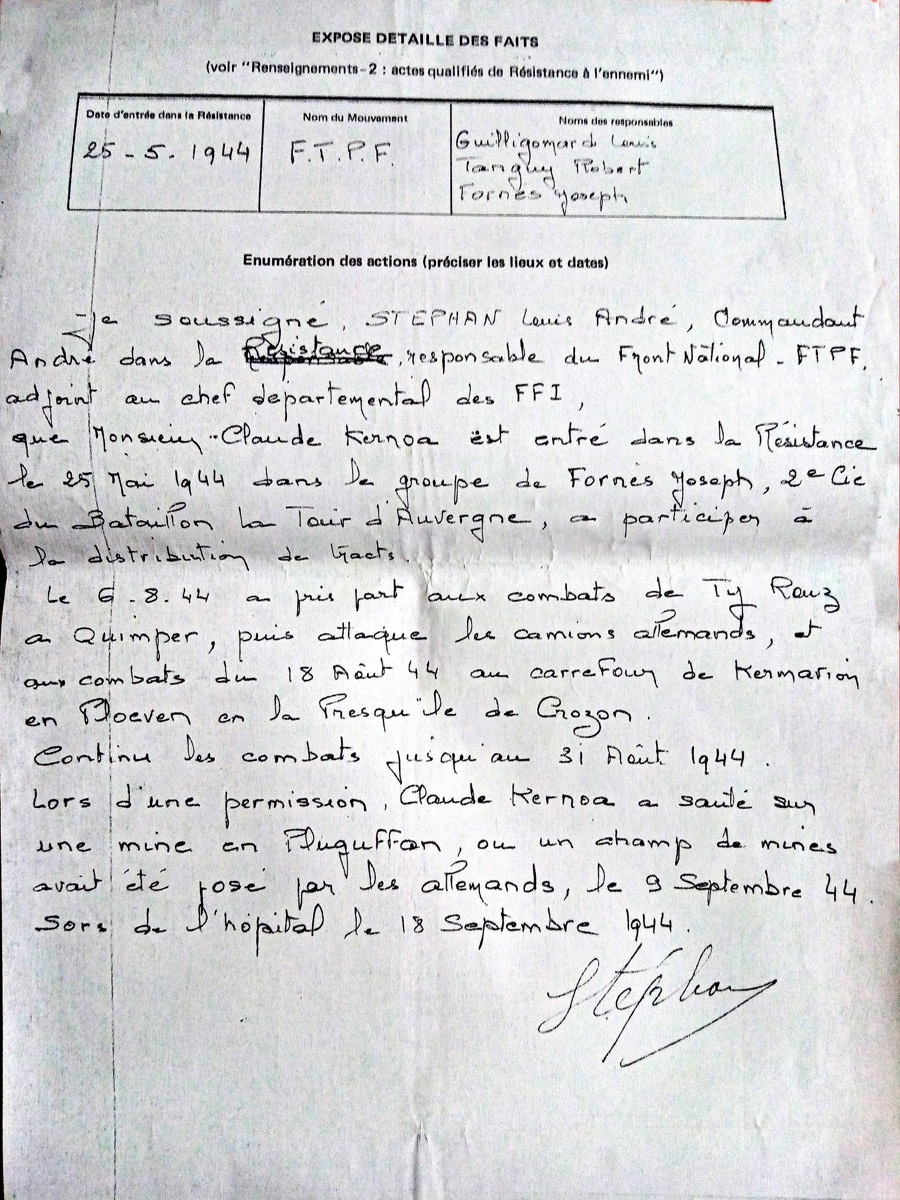 EXPOSE DETAILLE DES FAITS
(voir "Renseignements-2 : actes qualifiés de Résistance à l'ennemi")
Date d'entrée dans la Résistance
25 - 5 - 1944
Nom du Mouvement
F.T.P.F.
Noms des responsables
Guilligomard Louis
Tanguy Robert
Fornès Joseph
Enumération des actions (préciser les lieux et dates)
Je soussigné, STEPHAN Louis André, Commandant
André dans la Résistance, responsable du Front National - FTPF,
adjoint au chef départemental des FFI,
que Monsieur Claude Kernoa est entré dans la Résistance
le 25 Mai 1944 dans le groupe de Fornès Joseph, 2e Cie
du Bataillon La Tour d'Auvergne, a participer à
la distribution de tracts.
Le 6 - 8. 44 a pris part aux combats de Ty Rouz
a Quimper, puis attaque les camions allemands, et
aux combats du 18 Août 44 au carrefour de Kermarion
en Ploeven en la Presqu'île de Crozon.
Continu les combats jusqu'au 31 Août 1944.
Lors d'une permission, Claude Kernoa a sauté sur
une mine en Pluguffan, ou un champ de mines
avait été posé par les allemands, le 9 Septembre 44.
Sors de l'hôpital le 18 Septembre 1944.
Stéphan